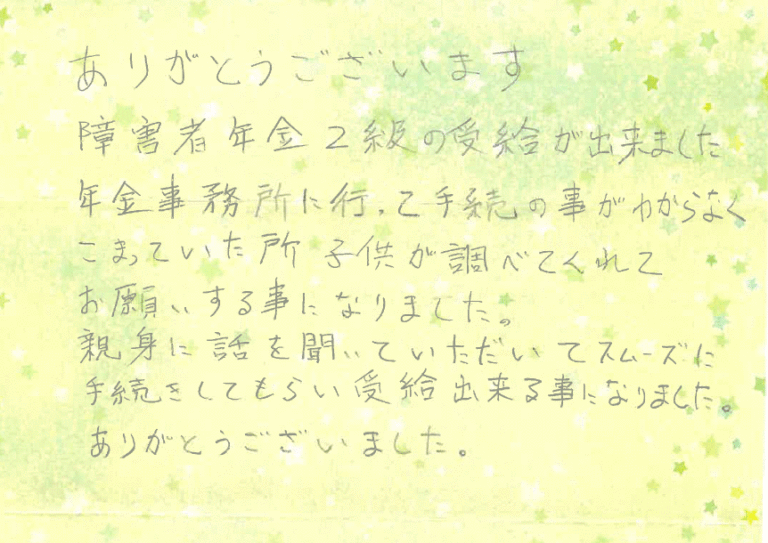 ありがとうございます
障害者年金2級の受給が出来ました
年金事務所に行って手続の事がわからなく
こまっていた所 子供が調べてくれて
お願いする事になりました。
親身に話を聞いていただいてスムーズに
手続きしてもらい受給出来る事になりました。
ありがとうございました。